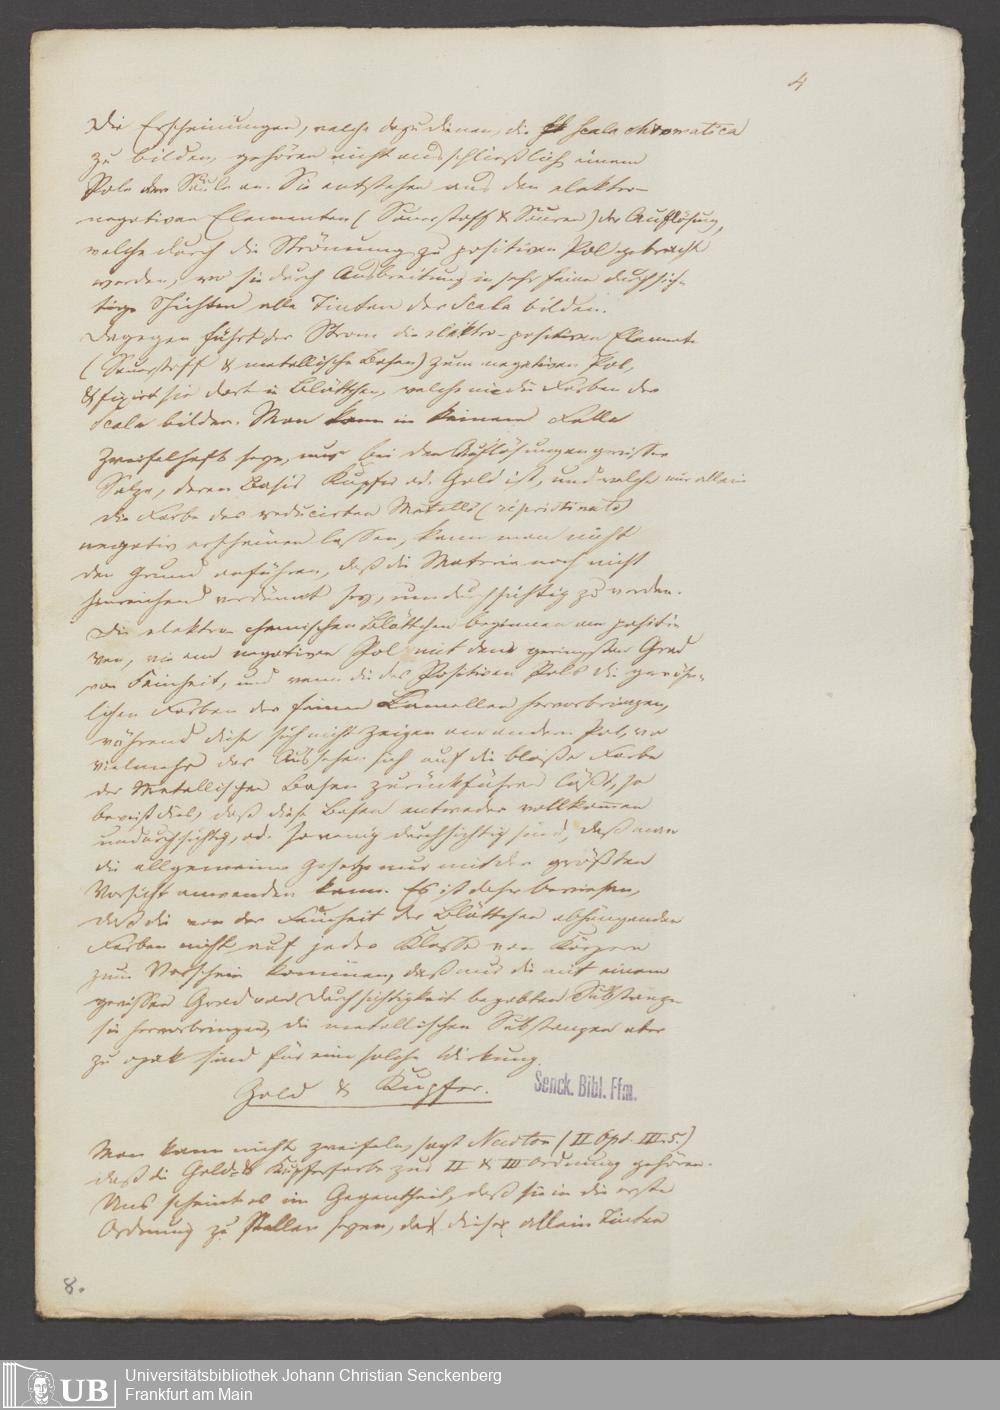 4
Die Erscheinungen, welche dazu dienen, die Scala chromatica
zu bilden, gehören nicht ausschließlich einem
Pole der Säule an. Sie entstehen aus den elektro-
negativen Elementen (Sauerstoff & Säuren) der Auflösung,
welche durch die Strömung zu positiven Pol gebracht
werden, wo sie durch Ausbreitung in sehr feine durchsich-
tige Schichten alle Tinten der Scala bilden.
Dagegen führt der Strom die elektro-positiven Elemente
(Sauerstoff & metallische Basen) zum negativen Pol,
& fixirt sie dort in Blättchen, welche nie die Farben der
Scala bilden. Man kann in keinem Falle
zweifelhaft seyn, nur bei den Auflösungen gewisser
Salze, deren Basis Kupfer od. Gold ist, und welche nur allein
die Farbe des reducirten Metalls (ripristinato)
negativ erscheinen lassen, kann man nicht
den Grund anführen, daß die Materie noch nicht
hinreichend verdünnt sey, um durchsichtig zu werden.
Die elektro-chemischen Blättchen beginnen am positi-
ven, wie am negativen Pol mit dem geringsten Grad
von Feinheit, und wenn die des Positiven Pols die gewöhn-
lichen Farben der feinen Lamellen hervorbringen,
während diese sich nicht zeigen am andern Pol, wo
vielmehr das Aussehen sich auf die bloße Farbe
der Metallischen Basen zurückführen läßt, so
beweist dies, daß diese Basen entweder vollkommen
undurchsichtig, od. so wenig durchsichtig sind, daß man
die allgemeinen Gesetze nur mit der größten
Vorsicht anwenden kann. Es ist daher bewiesen,
daß die von der Feinheit der Blättchen abhängenden
Farben nicht auf jeder Klasse von Körpern
zum Vorschein kommen, daß nur die mit einem
gewissen Grad von Durchsichtigkeit begabten Substanzen
sie hervorbringen, die metallischen Substanzen aber
zu opak sind für eine solche Wirkung.
Gold & Kupfer.
Senck. Bibl. Ffm.
Man kann nicht zweifeln, sagt Newton (II Opt. III. 5.)
daß die Gold- & Kupferfarbe zur II & III Ordnung gehören.
Uns scheint es im Gegentheil, daß sie in die erste
Ordnung zu stellen seyen, da diese allein Tinten
8.
UB
Universitätsbibliothek Johann Christian Senckenberg
Frankfurt am Main